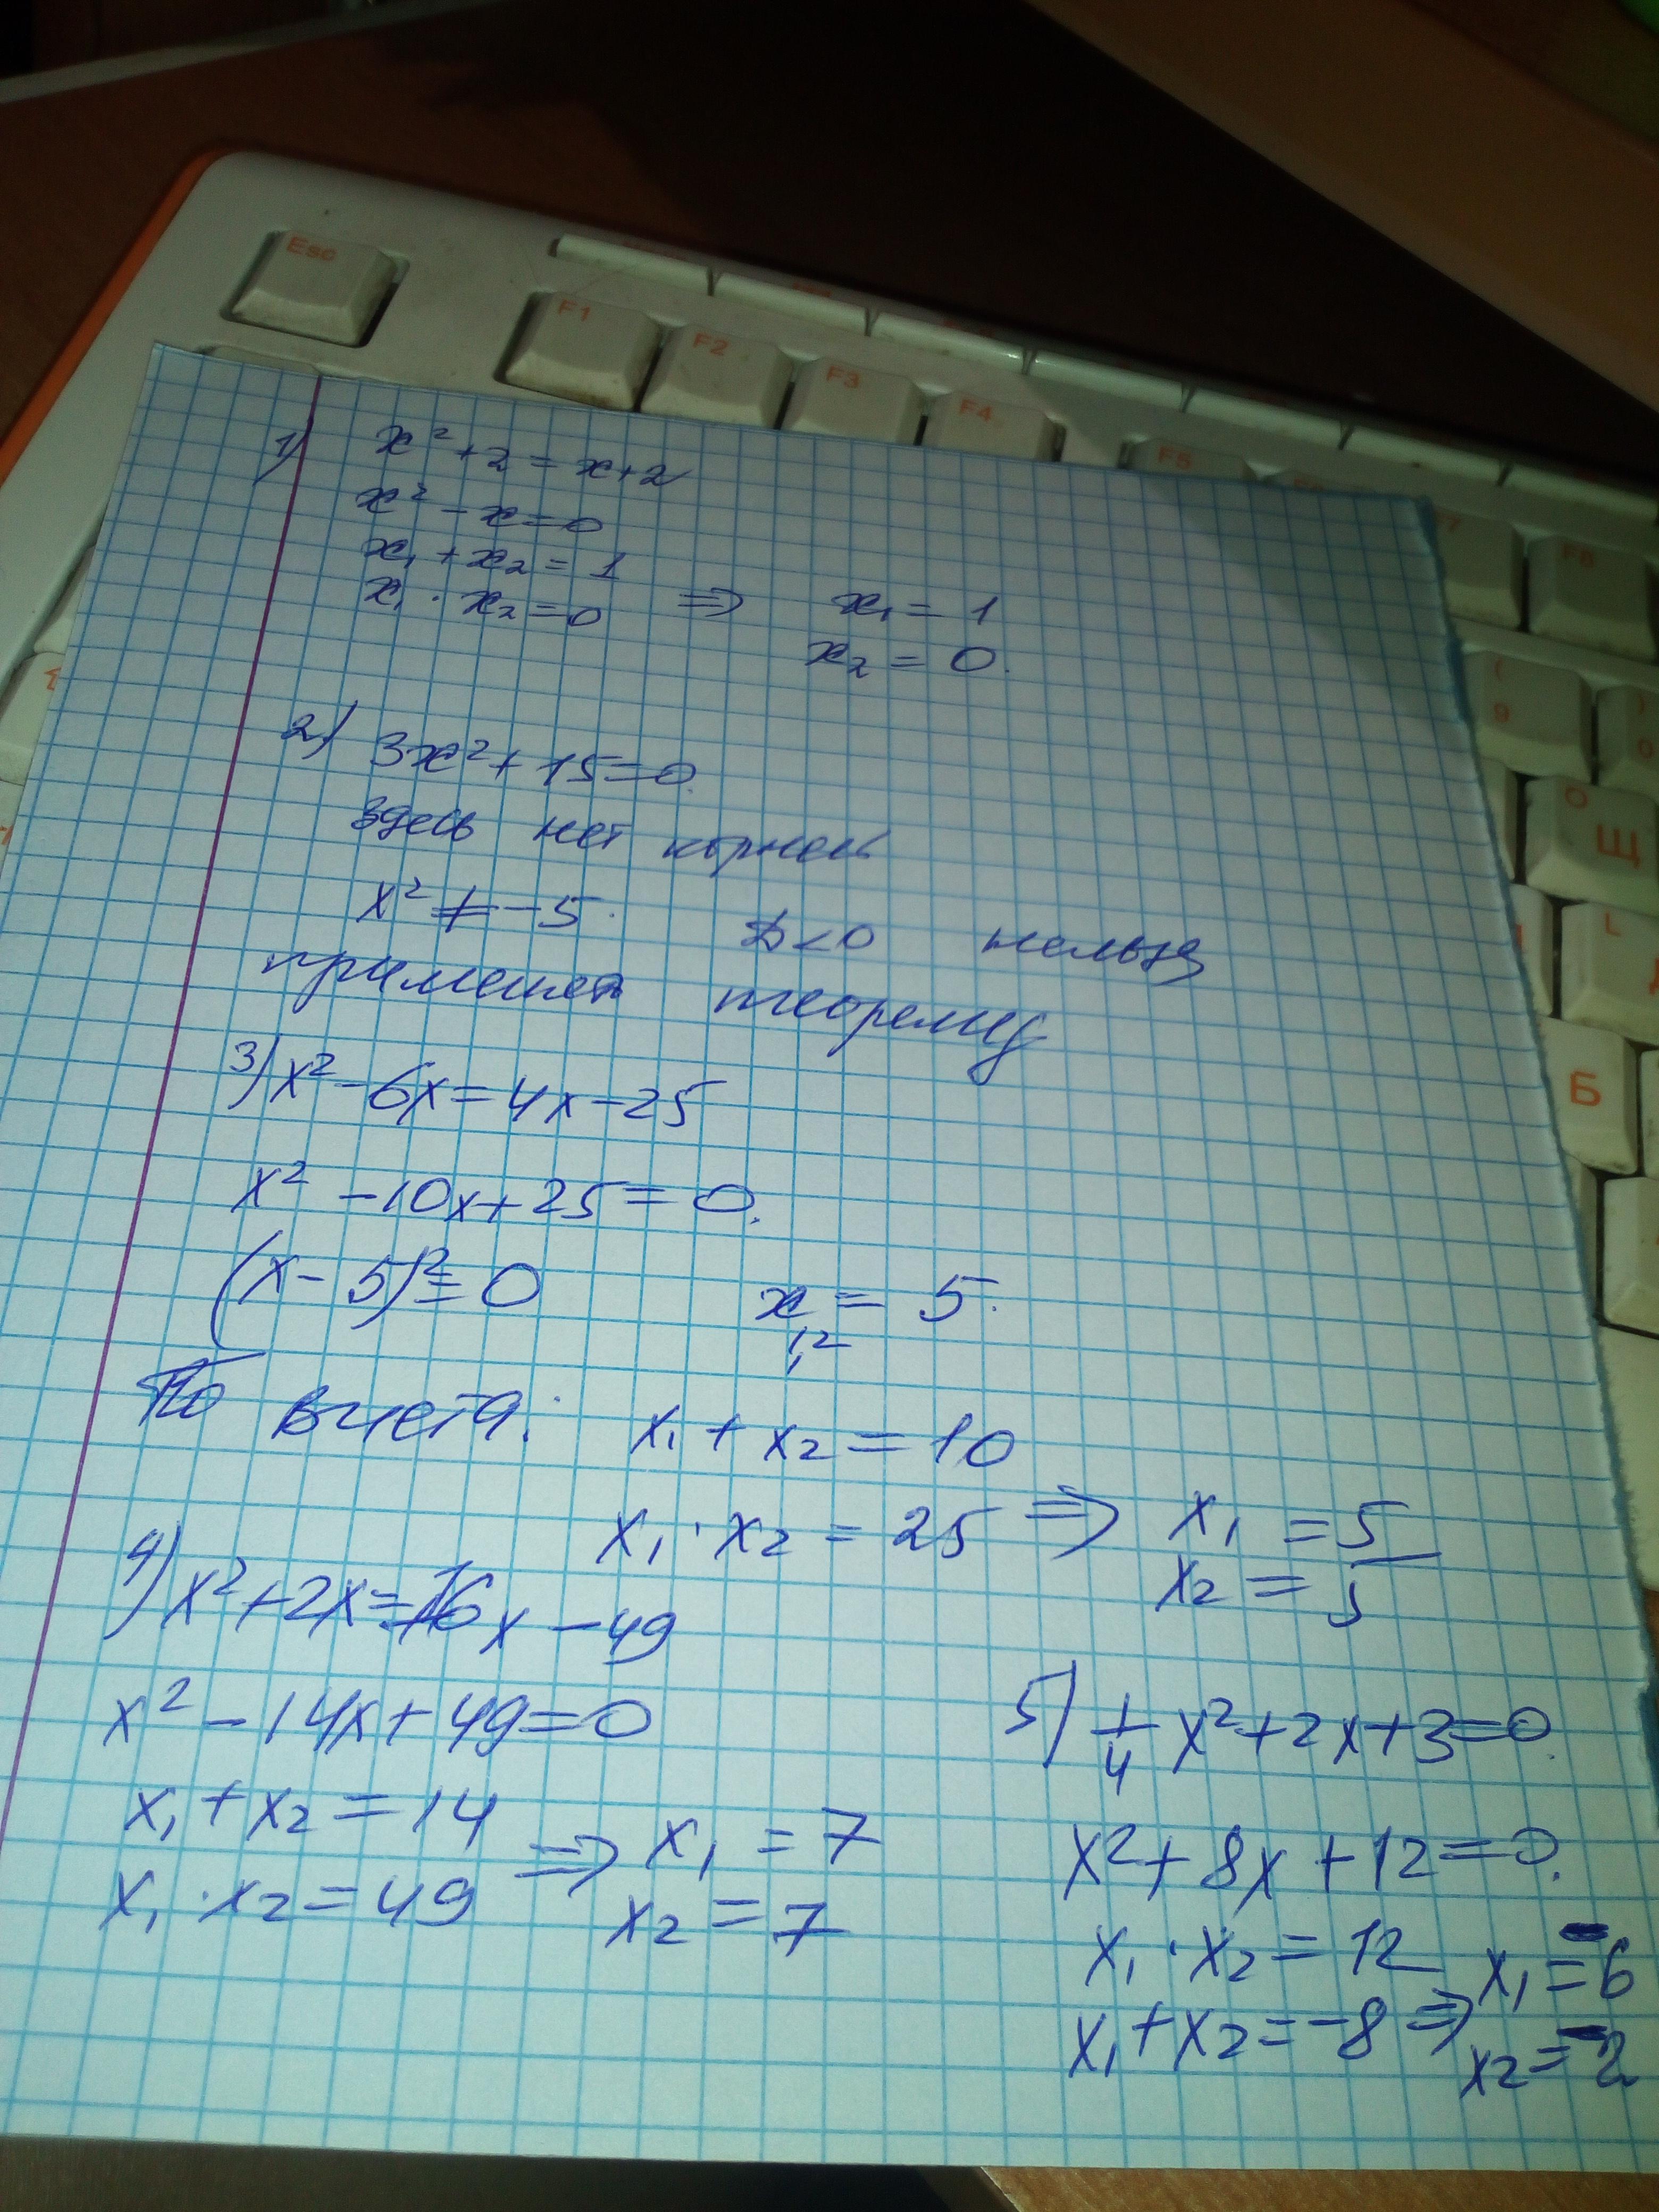 Esc
F1
F2
F3
F4
F5
1) x² + 2 = x + 2
x² - x = 0
x₁ + x₂ = 1
x₁ · x₂ = 0 ⇒ x₁ = 1
x₂ = 0.
2) 3x² + 15 = 0.
Здесь нет корней
x² ≠ -5. D < 0 нельзя
применять теорему
3) x² - 6x = 4x - 25
x² - 10x + 25 = 0.
(x - 5)² = 0 x₁,₂ = 5.
По виета: x₁ + x₂ = 10
x₁ · x₂ = 25 ⇒ x₁ = 5
x₂ = 5
4) x² + 2x = 16x - 49
x² - 14x + 49 = 0
x₁ + x₂ = 14
x₁ · x₂ = 49 ⇒ x₁ = 7
x₂ = 7
5) 1/4 x² + 2x + 3 = 0.
x² + 8x + 12 = 0.
x₁ · x₂ = 12
x₁ + x₂ = -8 ⇒ x₁ = -6
x₂ = -2
( 9
) 0
Щ
Б